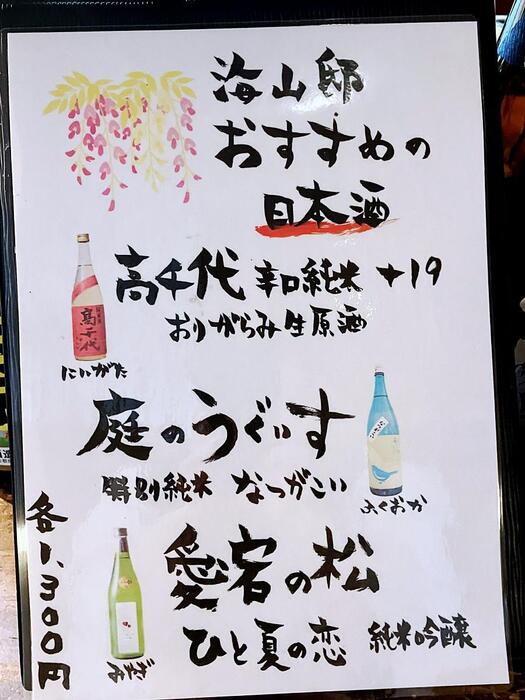 海山邸
おすすめの
日本酒
高千代 辛口純米 +19
おりがらみ生原酒
高千代
にいがた
庭のうぐいす
特別純米 なつがこい
ふくおか
愛宕の松
ひと夏の恋 純米吟醸
みやぎ
各1,300円